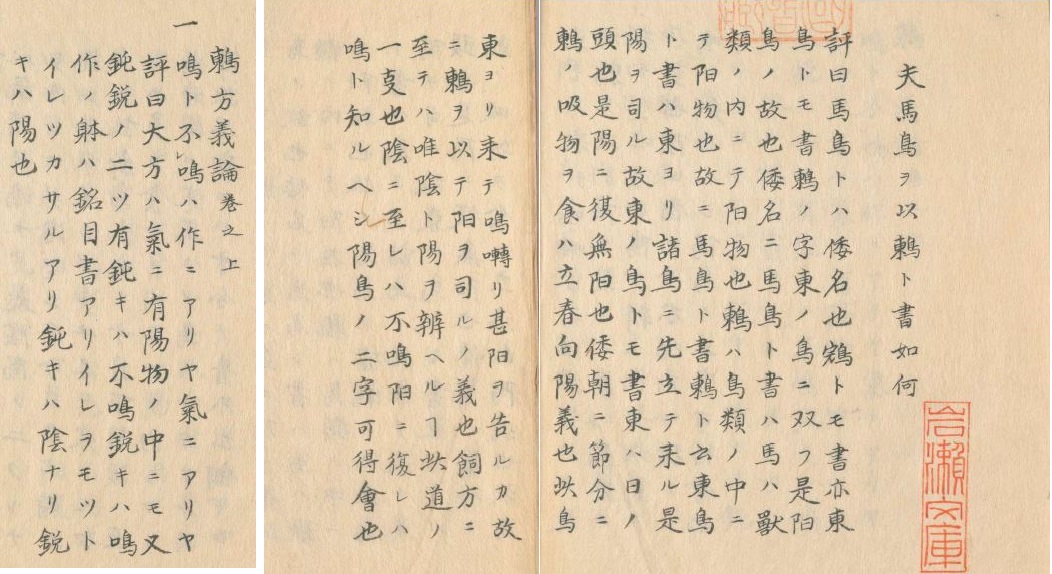 夫馬鳥ヲ以鶇ト書如何
評曰馬鳥トハ倭名也トモ書亦東
鳥トモ書鶇ノ字東ノ鳥ニ双フ是阳
鳥ノ故也倭名ニ馬鳥ト書ハ馬ハ獣
類ノ内ニテ阳物也鶇ハ鳥類ノ中ニ
テ阳物也故ニ馬鳥ト書鶇ト云東鳥
ト書ハ東ヨリ諸鳥ニ先立テ来ル是
陽ヲ司ル故東ノ鳥トモ書東ハ日ノ
頭也是陽ニ復無阳也倭朝ニ節分ニ
鶇ノ吸物ヲ食ハ立春向陽義也此鳥
岩瀬文庫
東ヨリ来テ鳴囀リ甚阳ヲ告ルカ故
ニ鶇ヲ以テ阳ヲ司ルノ義也飼方ニ
至テハ唯陰ト陽ヲ辨ヘルヿ此道ノ
一支也陰ニ至レハ不鳴阳ニ復レハ
鳴ト知ルヘシ陽鳥ノ二字可得會也
鶇方義論巻之上
一鳴ト不鳴ハ作ニアリヤ氣ニアリヤ
評曰大方ハ氣ニ有陽物ノ中ニモ又
鈍鋭ノ二ツ有鈍キハ不鳴鋭キハ鳴
作ノ躰ハ銘目書アリイレヲモツト
イレツカサルアリ鈍キハ陰ナリ鋭
キハ陽也